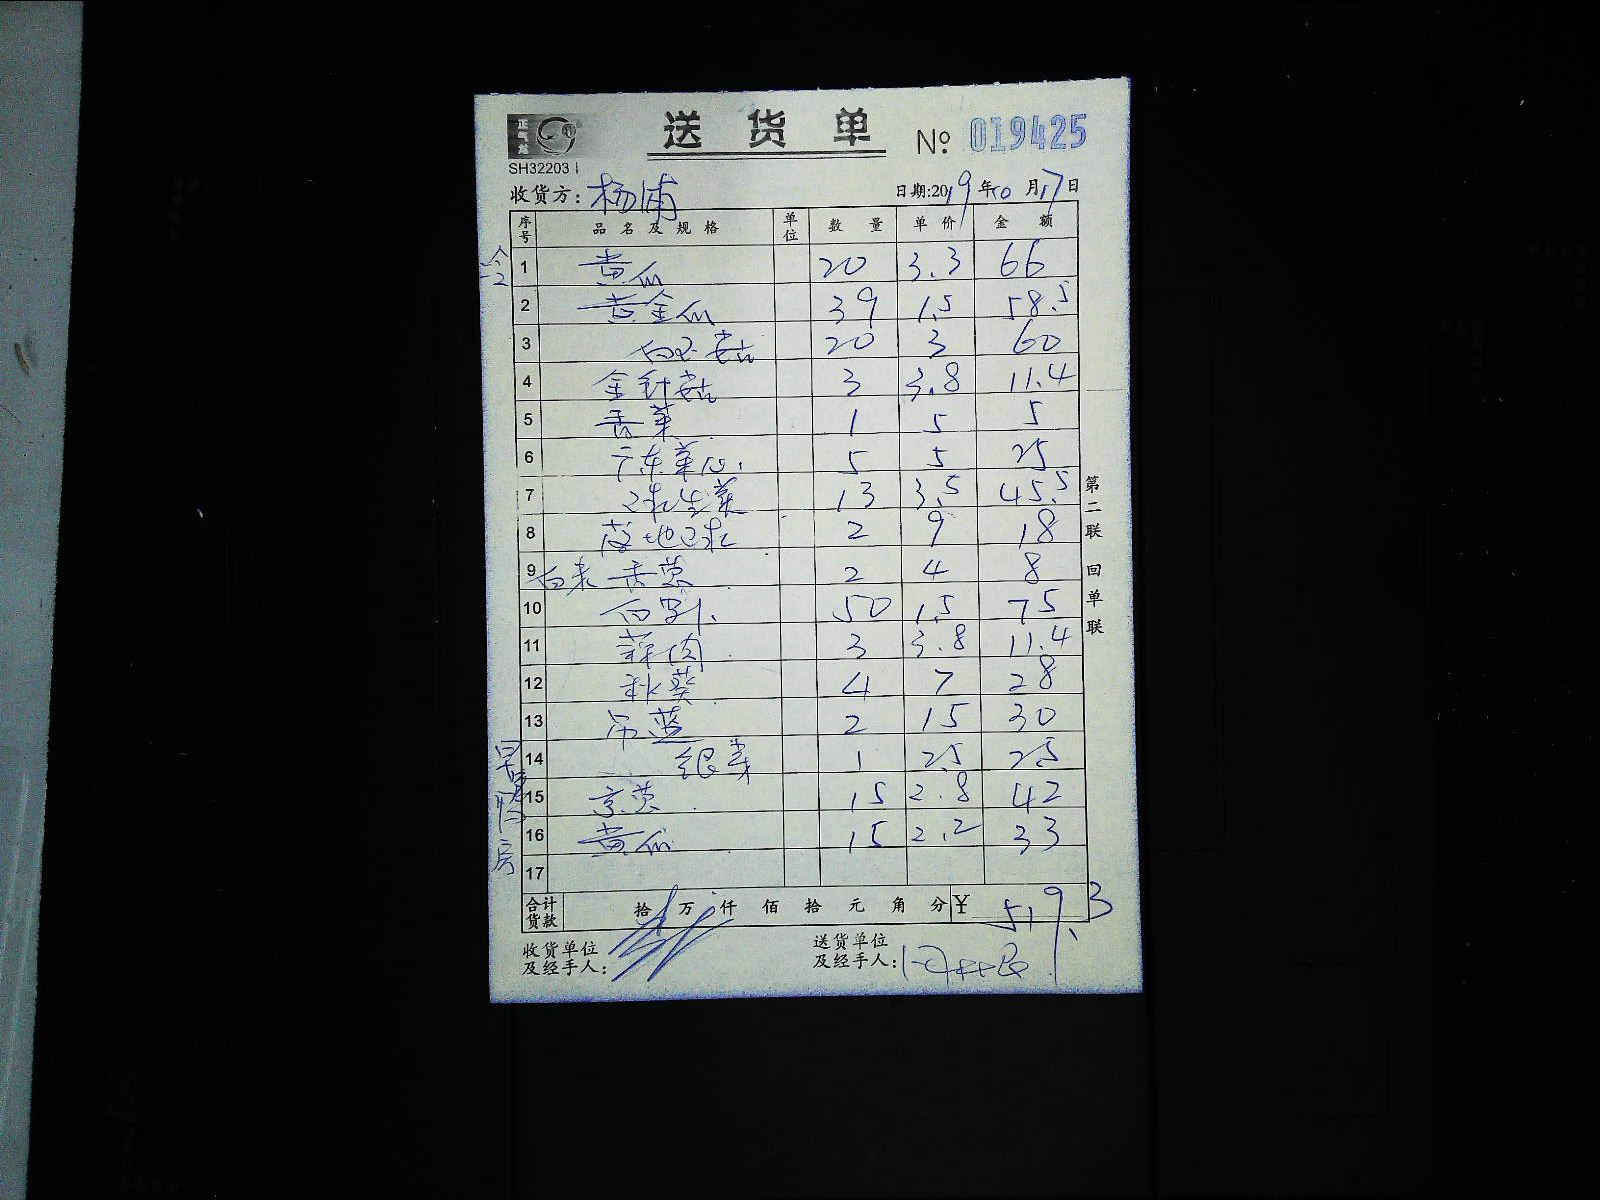 正气龙
SH32203
送 货 单 № 019425
收货方: 杨浦 日期:2019年10月17日
序号 品名及规格 单位 数量 单价 金额
1 黄瓜 20 3.3 66
2 黄金瓜 39 1.5 58.5
3 白玉菇 20 3 60
4 金针菇 3 3.8 11.4
5 香菜 1 5 5
6 广东菜心 5 5 25
7 球生菜 13 3.5 45.5
8 2 9 18
9 香葱 2 4 8
10 50 1.5 75
11 蒜肉 3 3.8 11.4
12 秋葵 4 7 28
13 吊蓝 2 15 30
14 银芽 1 2.5 2.5
15 京葱 15 2.8 42
16 黄瓜 15 2.2 33
17
合计货款 拾 万 仟 佰 拾 元 角 分 ¥ 519.3
收货单位及经手人:
送货单位及经手人:
第二联 回单联